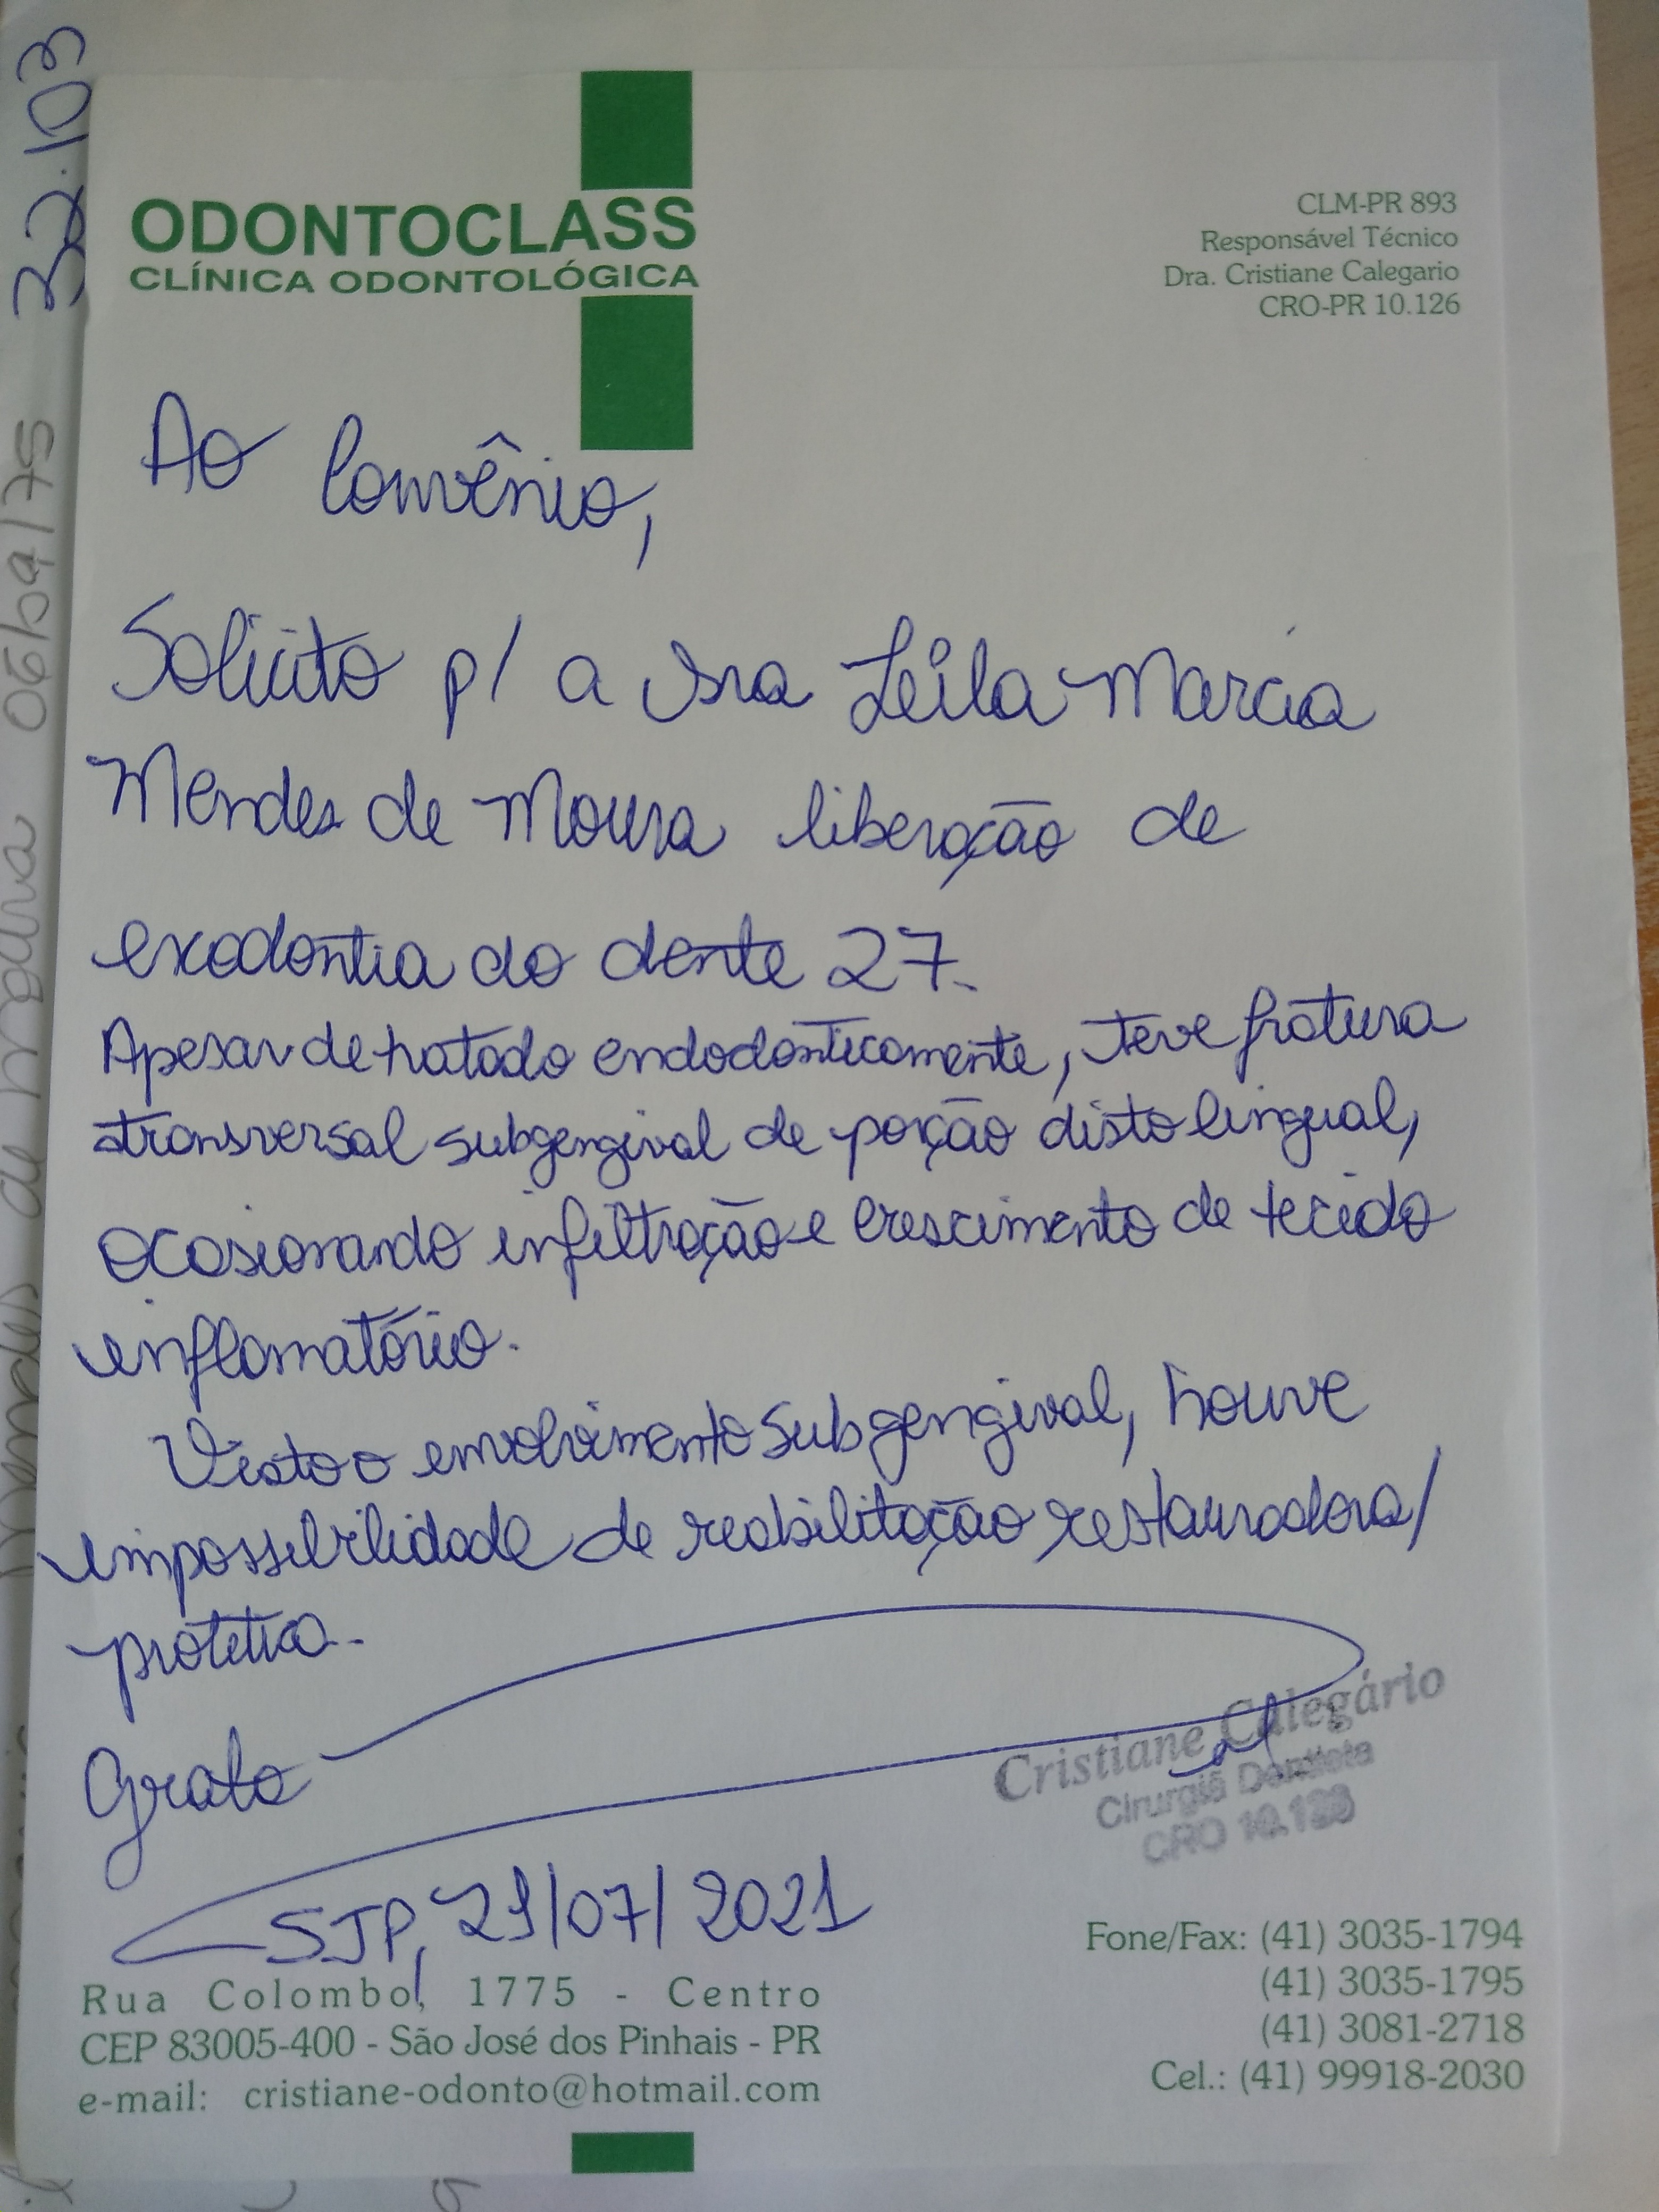 32.103
06/09/75
Mendes de Moura
ODONTOCLASS
CLÍNICA ODONTOLÓGICA
CLM-PR 893
Responsável Técnico
Dra. Cristiane Calegario
CRO-PR 10.126
Ao Convênio,
Solicito p/ a Sra Leila Marcia
Mendes de Moura liberação de
exodontia do dente 27.
Apesar de tratado endodonticamente, teve fratura
transversal subgengival de porção disto lingual,
ocasionando infiltração e crescimento de tecido
inflamatório.
Visto o envolvimento subgengival, houve
impossibilidade de reabilitação restauradora/
protética.
Grato
Cristiane Calegário
Cirurgiã Dentista
CRO 10.126
SJP, 29/07/2021
Rua Colombo, 1775 - Centro
CEP 83005-400 - São José dos Pinhais - PR
e-mail: cristiane-odonto@hotmail.com
Fone/Fax: (41) 3035-1794
(41) 3035-1795
(41) 3081-2718
Cel.: (41) 99918-2030